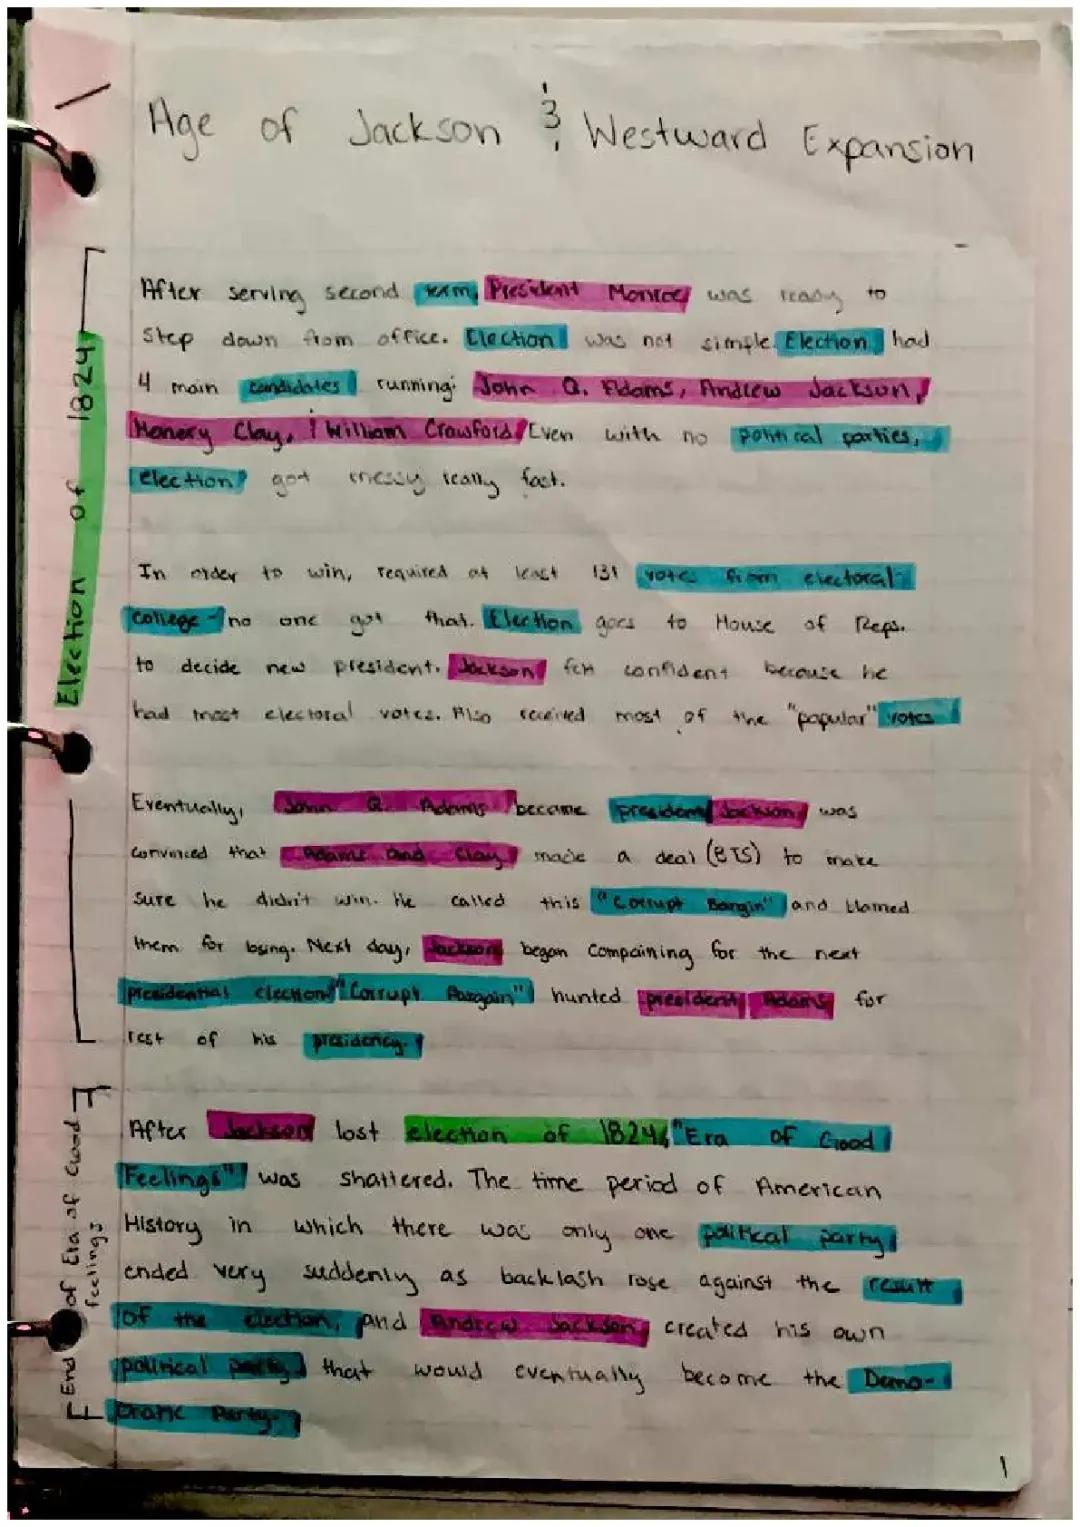 Age of Jackson & Westward Expansion
Election of 1824
After serving second term, President Monroe was ready to
step down from office. Election was not simple. Election had
4 main candidates running: John Q. Adams, Andrew Jackson,
Henery Clay, & William Crawford. Even with no political parties,
election got messy really fast.
In order to win, required at least 131 votes from electoral
college - no one got that. Election goes to House of Reps.
to decide new president. Jackson felt confident because he
had most electoral votes. Also received most of the "popular" votes
Eventually, John Q. Adams became president. Jackson was
convinced that Adams and Clay made a deal (BTS) to make
sure he didn't win. He called this "Corrupt Bargin" and blamed
them for losing. Next day, Jackson began compaining for the next
presidential election. "Corrupt Bargain" hunted president Adams for
rest of his presidency.
End of Era of Good
Feelings
After Jackson lost election of 1824, "Era of Good
Feelings" was shattered. The time period of American
History in which there was only one political party,
ended very suddenly as backlash rose against the result
of the election, and Andrew Jackson created his own
political party that would eventually become the Demo-
cratic Party.
1